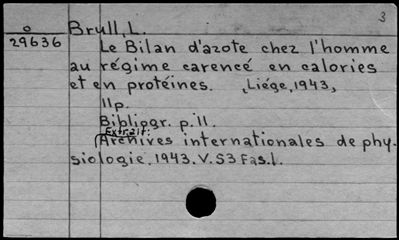 3
o
29636
Brull, L.
Le Bilan d'azote chez l'homme
au régime carencé en calories
et en protéines. , Liége, 1943,
11p.
Bibliogr. p. 11.
Extrait:
Archives internationales de phy-
siologie. 1943. V. 53 Fas. 1.